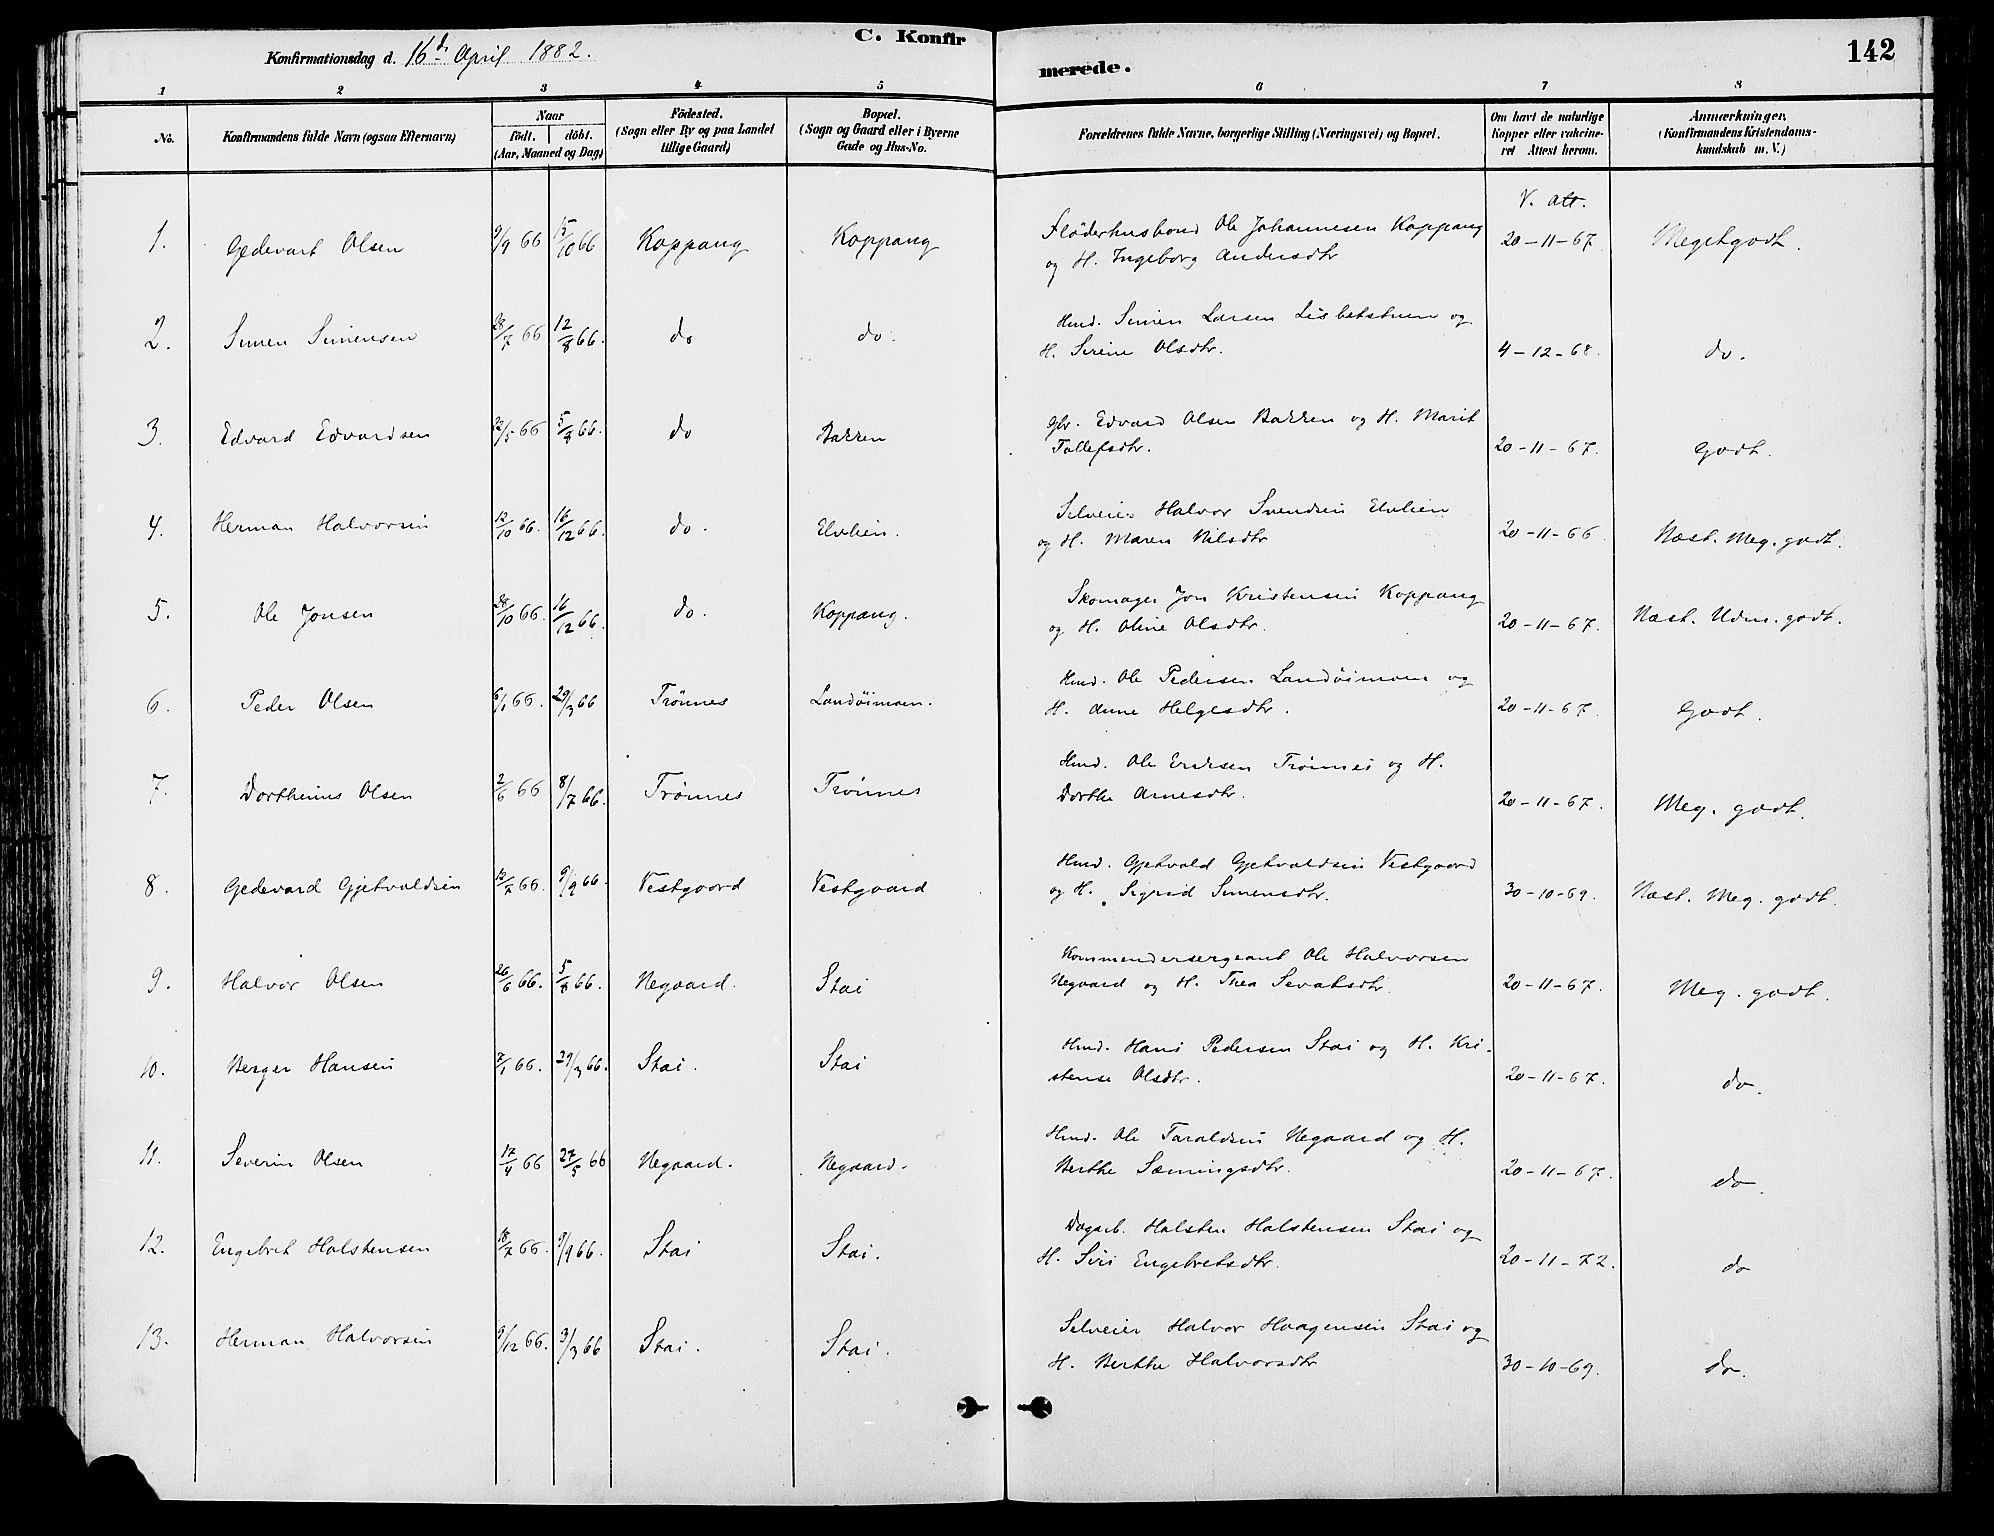 C. Konfir
merede.
142
Konfirmationsdag d. 16de April 1882.
1 2 3 4 5 6 7 8
No. Konfirmandens fulde Navn (ogsaa Efternavn) Naar født. døbt. (Aar, Maaned og Dag) Födested. (Sogn eller By og paa Landet tillige Gaard) Bopæl. (Sogn og Gaard eller i Byerne Gade og Hus-No. Forældrenes fulde Navne, borgerlige Stilling (Næringsvei) og Bopæl. Om havt de naturlige Kopper eller vakcineret Attest herom. Anmærkninger, (Konfirmandens Kristendomskundskab m. V.)
V. att.
1. Gedevart Olsen 9/9 66 15/10 66 Koppang Koppang Fløderhusbond Ole Johannesen Koppang 20-11-67. Megetgodt.
og H. Ingeborg Andersdtr
2. Simen Simensen 28/7 66 12/8 66. do do. Hmd. Simen Larsen Lisbetstuen og
H. Sirine Olsdtr. 4-12-68. do.
3. Edvard Edvardsen 22/5 66 5/8 66. do Bakken Gbr. Edvard Olsen Bakken og H. Marit
Tollefsdtr. 20-11-67. Godt.
4. Herman Halvorsen 12/10 66. 16/12 66. do. Elvlien. Selveier Halvor Svendsen Elvlien
og H. Maren Nilsdtr 20-11-66. Næst. Meg. godt.
5. Ole Jonsen 28/10 66. 16/12 66. do. Koppang. Skomager Jon Kristensen Koppang
og H. Oline Olsdtr. 20-11-67. Næst. Udm. godt.
6. Peder Olsen 6/1 66. 29/3 66 Trønnes Landøimoen. Hmd. Ole Pedersen Landøimoen og
H. Anne Helgesdtr. 20-11-67. Godt.
7. Dorthinus Olsen 2/6 66 8/7 66. Trønnes Trønnes Hmd. Ole Eriksen Trønnes og H.
Dorthe Arnesdtr. 20-11-67. Meg. godt.
8. Gedevard Gjetvoldsen 12/7 66. 9/9 66. Vestgaard Vestgaard Hmd. Gjetvold Gjetvoldsen Vestgaard
og H. Sigrid Simensdtr. 30-10-69. Næst. Meg. godt.
9. Halvor Olsen 26/6 66. 5/8 66. Negaard. Stai Kommendersergeant Ole Halvorsen
Negaard og H. Thea Sevatsdtr. 20-11-67. Meg. godt.
10. Berger Hansen 7/1 66. 29/3 66. Stai. Stai Hmd. Hans Pedersen Stai og H. Kri-
stense Olsdtr. 20-11-67. do.
11. Severin Olsen 17/4 66 27/5 66 Negaard. Negaard. Hmd. Ole Taraldsen Negaard og H.
Berthe Sæmingsdtr. 20-11-67. do.
12. Engebret Halstensen 18/7 66. 9/9 66. Stai Stai. Dagarb. Halsten Halstensen Stai og
H. Siri Engebretsdtr. 20-11-72. do
13. Herman Halvorsen 9/12 66. 3/3 66 Stai. Stai. Selveier Halvor Haagensen Stai og
H. Berthe Halvorsdtr 30-10-69. do.